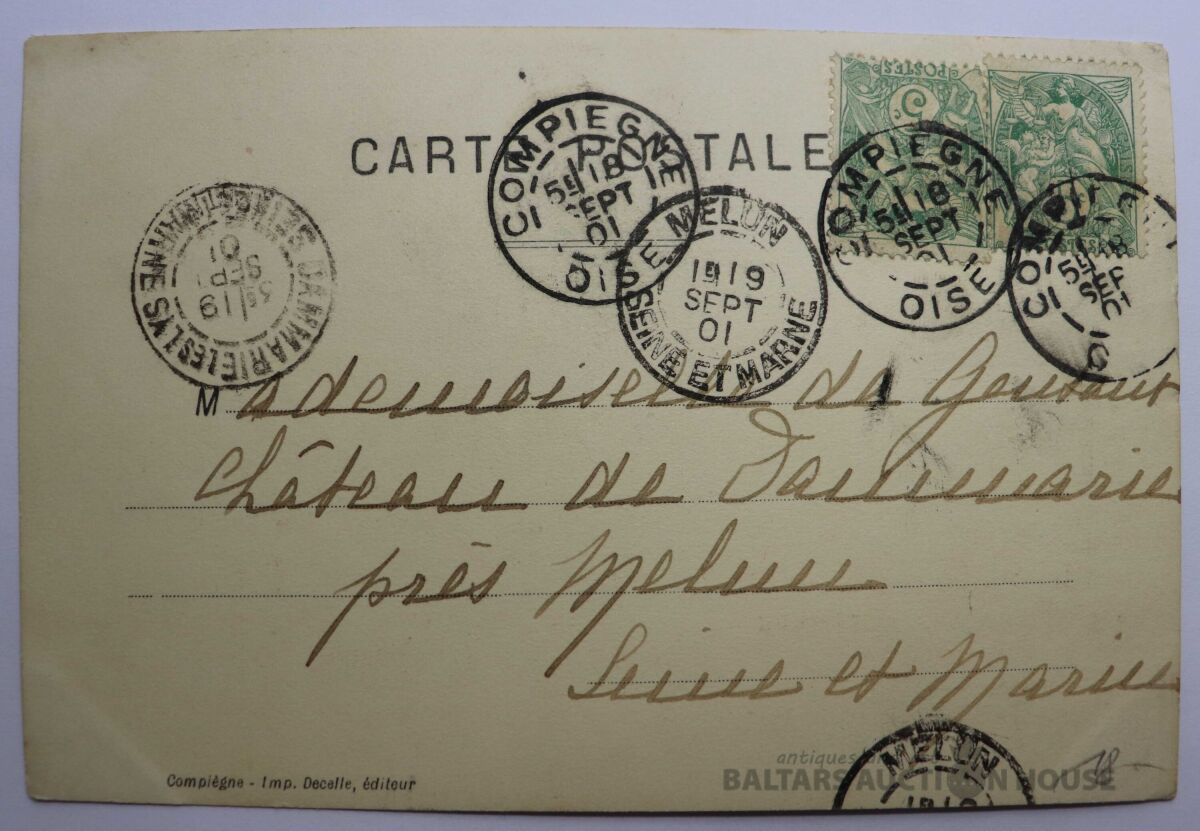 POSTES
5
CARTE POSTALE
COMPIEGNE
5E 18
SEPT
01
OISE
COMPIEGNE
5E 18
SEPT
01
OISE
COMPIEG
5E 18
SEPT
01
O
MELUN
19
SEPT
01
SEINE ET MARNE
DAMMARIE LES LYS
19
SEPT
01
SEINE ET MARNE
Mademoiselle de
Château de Dammarie
près Melun
Seine et Marne
MELUN
Compiègne - Imp. Decelle, éditeur
antiques
BALTARS AUCTION HOUSE
18